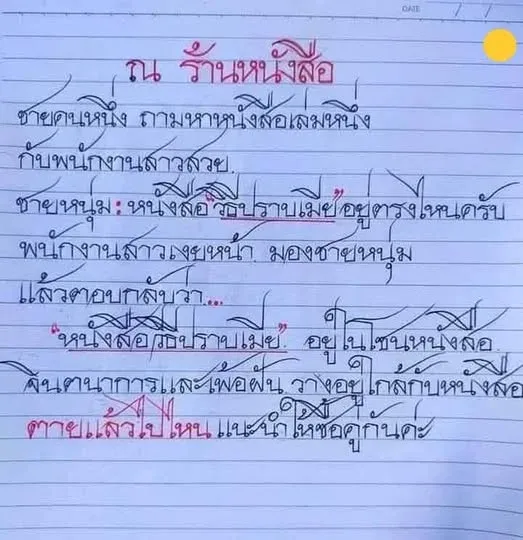 DATE / /
ณ ร้านหนังสือ
ชายคนหนึ่ง ถามหาหนังสือเล่มหนึ่ง
กับพนักงานสาวสวย.
ชายหนุ่ม : หนังสือ "วิธีปราบเมีย" อยู่ตรงไหนครับ
พนักงานสาวเงยหน้า มองชายหนุ่ม
แล้วตอบกลับว่า...
"หนังสือวิธีปราบเมีย" อยู่ในโซนหนังสือ
จินตนาการและเพ้อฝัน วางอยู่ใกล้กับหนังสือ
ตายแล้วไปไหน แนะนำให้ซื้อคู่กันค่ะ